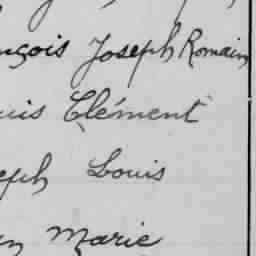 nçois Joseph Romain
uis Clément
eph Louis
en Marie